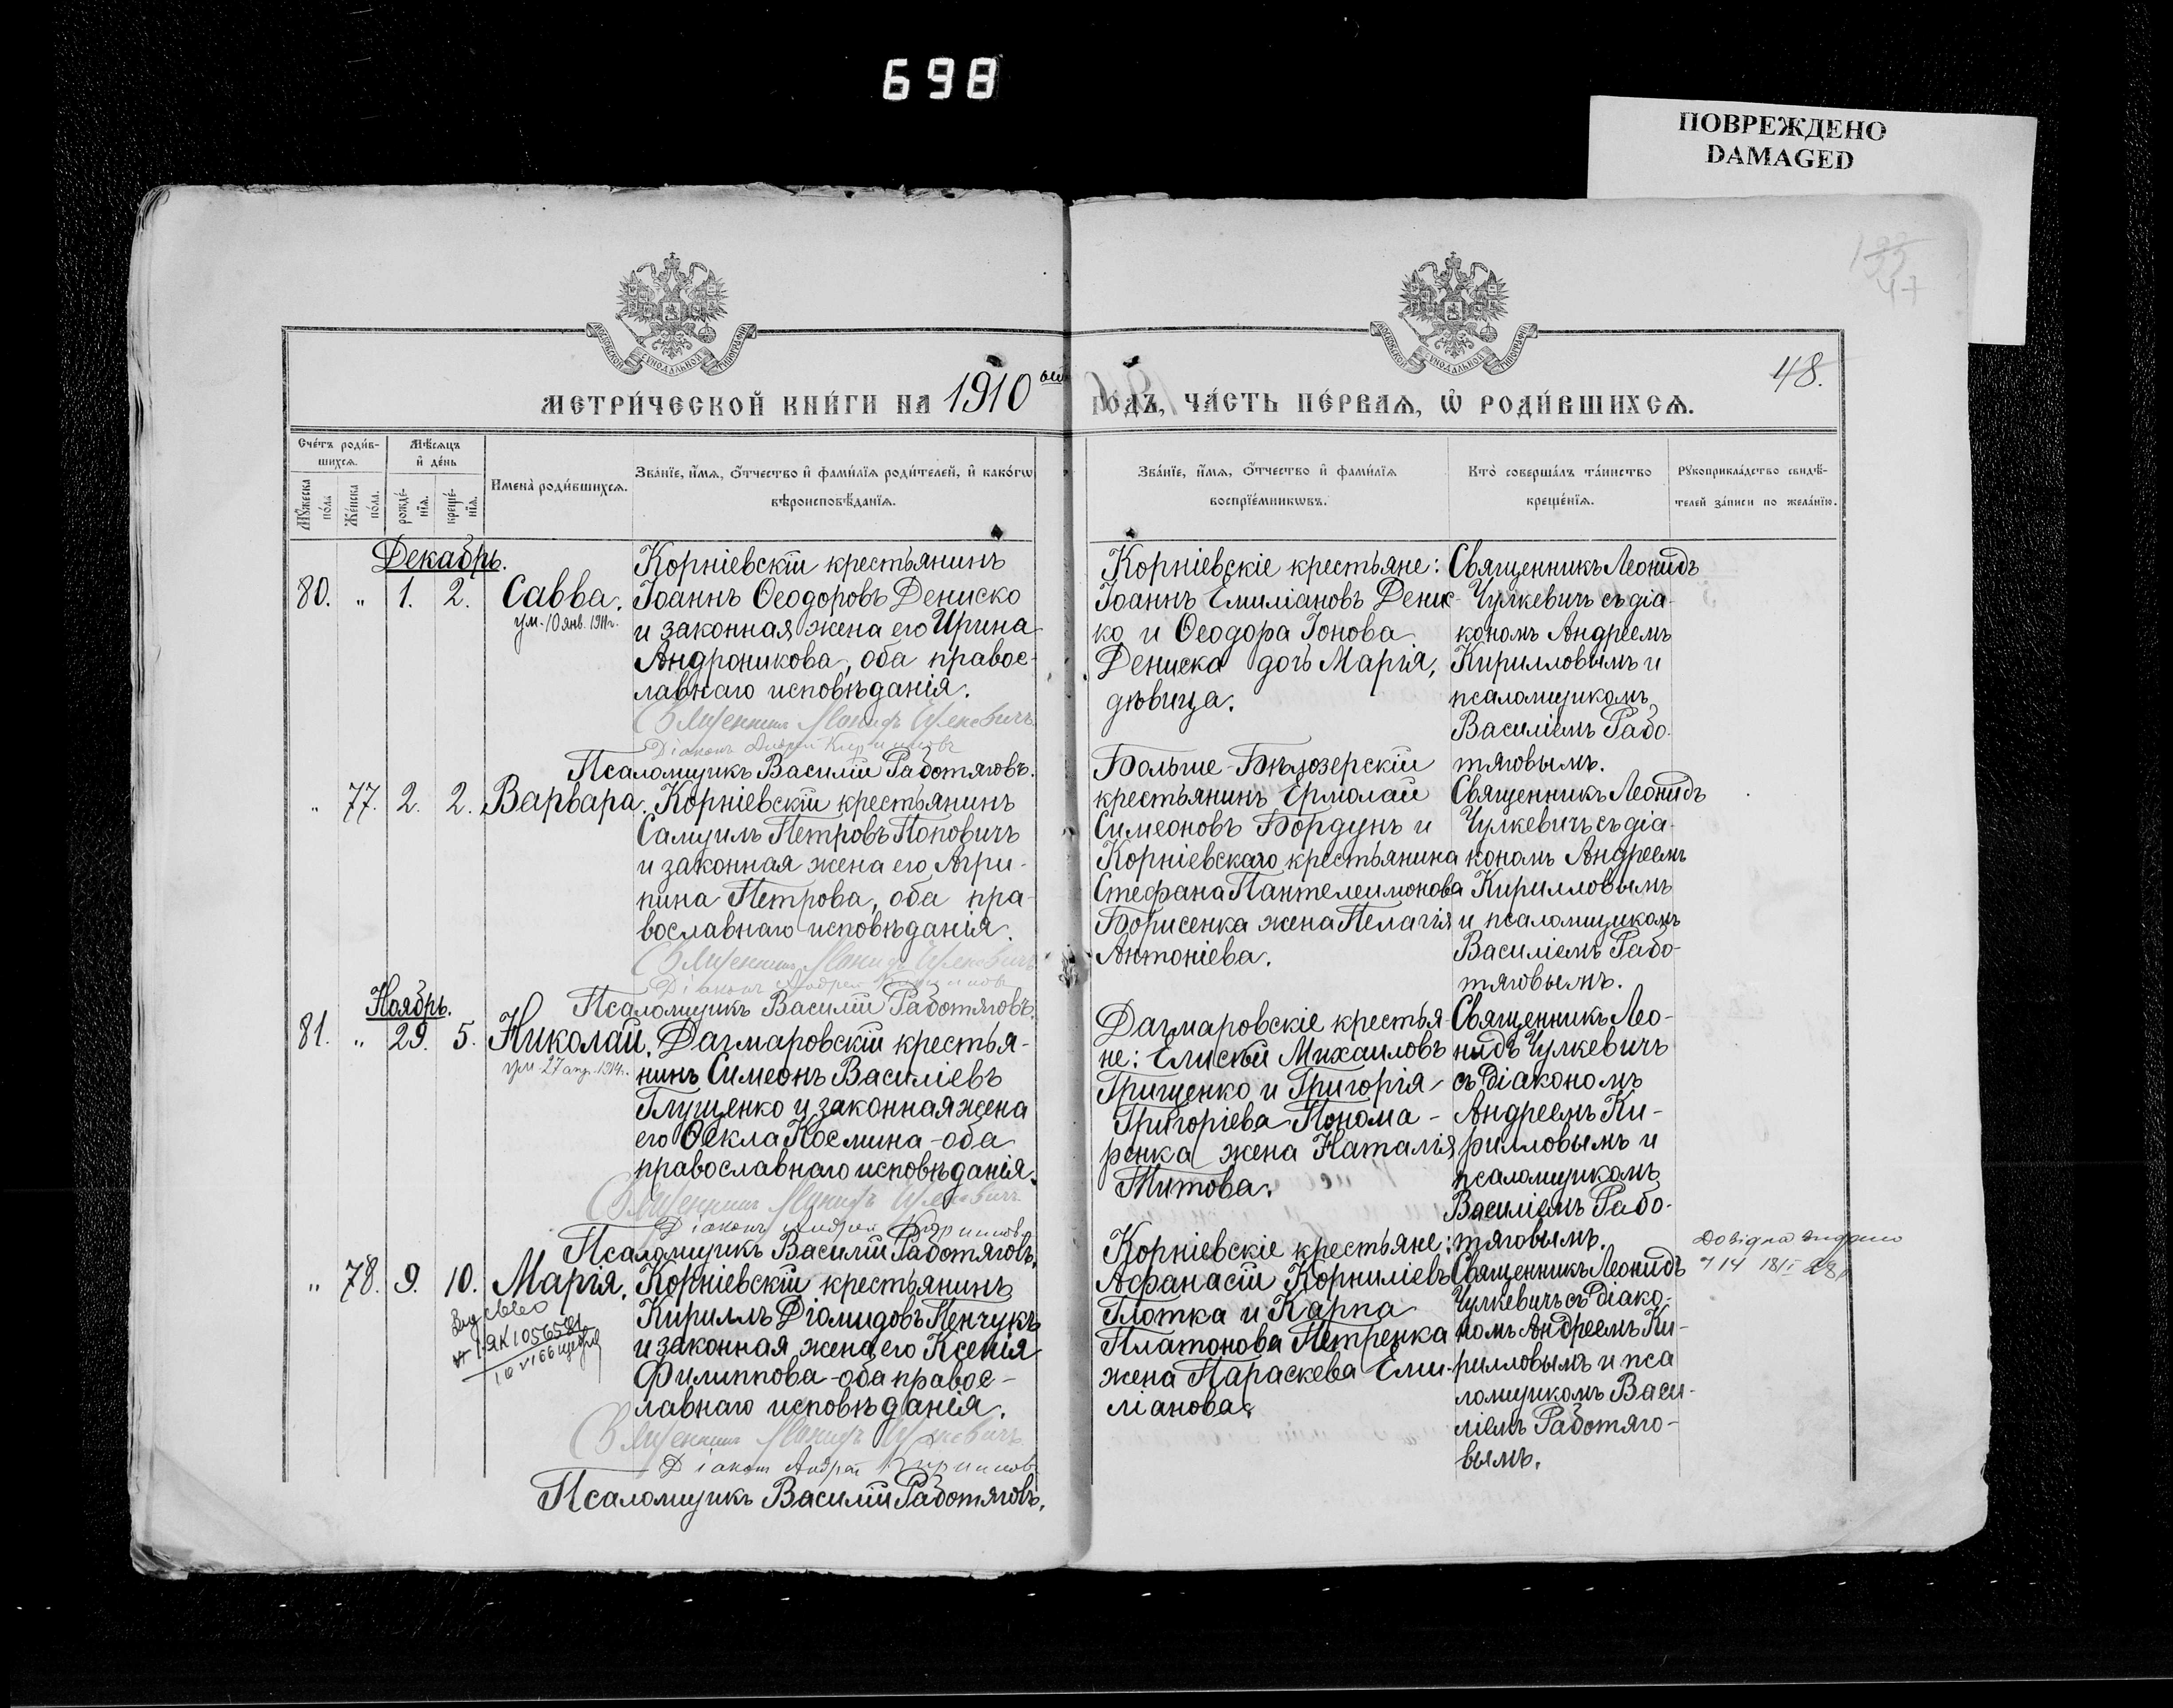 698
ПОВРЕЖДЕНО
DAMAGED
47
48.
МОСКОВСКОЙ СѴНОДАЛЬНОЙ ТИПОГРАФІИ
МОСКОВСКОЙ СѴНОДАЛЬНОЙ ТИПОГРАФІИ
МЕТРИ́ЧЕСКОЙ КНИ́ГИ НА 1910 ый ГО́ДЪ, ЧА́СТЬ ПЕ́РВАѦ, Ѡ҆ РОДИ́ВШИХСѦ.
Сче́тъ роди́в-
шихсѧ.
Мꙋ́жеска по́ла
Же́нска по́ла.
Мѣ́сѧцъ
и҆ де́нь
рожде́-
нїѧ.
креще́-
нїѧ.
И҆мена̀ роди́вшихсѧ.
Зва́нїе, и҆́мѧ, ѻ҆́тчество и҆ фами́лїѧ роди́телей, и҆ како́гѡ
вѣроисповѣ́данїѧ.
Зва́нїе, и҆́мѧ, ѻ҆́тчество и҆ фами́лїѧ
воспрїе́мникѡвъ.
Кто̀ соверша́лъ та́инство
креще́нїѧ.
Рꙋкоприкла́дство свидѣ́-
телей за́писи по жела́нїю.
Декабрь.
80. " 1. 2. Савва.
ум. 10 янв. 1911 г.
Корніевскій крестьянинъ
Іоаннъ Ѳеодоровъ Дениско
и законная жена его Ирина
Андроникова, оба правос-
лавнаго исповѣданія.
Священникъ Леонидъ Чулкевичъ
Діаконъ Андрей Кирилловъ
Псаломщикъ Василій Работяговъ.
Корніевскіе крестьяне:
Іоаннъ Емиліановъ Денис-
ко и Ѳеодора Іонова
Дениска дочь Марія,
дѣвица.
Священникъ Леонидъ
Чулкевичъ съ діа-
кономъ Андреемъ
Кирилловымъ и
псаломщикомъ
Василіемъ Рабо-
тяговымъ.
" 77. 2. 2. Варвара.
Корніевскій крестьянинъ
Самуилъ Петровъ Поповичъ
и законная жена его Агри-
пина Петрова, оба пра-
вославнаго исповѣданія.
Священникъ Леонидъ Чулкевичъ
Діаконъ Андрей Кирилловъ
Псаломщикъ Василій Работяговъ.
Больше-Бѣлозерскій
крестьянинъ Ермолай
Симеоновъ Бордунъ и
Корніевскаго крестьянина
Стефана Пантелеимонова
Борисенка жена Пелагія
Антоніева.
Священникъ Леонидъ
Чулкевичъ съ діа-
кономъ Андреемъ
Кирилловымъ
и псаломщикомъ
Василіемъ Рабо-
тяговымъ.
Ноябрь.
81. " 29. 5. Николай.
ум. 27 апр. 1914 г.
Дагмаровскій крестья-
нинъ Симеонъ Василіевъ
Глущенко и законная жена
его Ѳекла Космина - оба
православнаго исповѣданія.
Священникъ Леонидъ Чулкевичъ
Діаконъ Андрей Кирилловъ
Псаломщикъ Василій Работяговъ.
Дагмаровскіе крестья-
не: Елисей Михаиловъ
Грищенко и Григорія
Григоріева Понома-
ренка жена Наталія
Титова.
Священникъ Лео-
нидъ Чулкевичъ
съ діакономъ
Андреемъ Ки-
рилловымъ и
псаломщикомъ
Василіемъ Рабо-
тяговымъ.
" 78. 9. 10. Марія.
Корніевскій крестьянинъ
Кириллъ Діомидовъ Кенчукъ
и законная жена его Ксенія
Филиппова - оба правос-
лавнаго исповѣданія.
Священникъ Леонидъ Чулкевичъ
Діаконъ Андрей Кирилловъ
Псаломщикъ Василій Работяговъ.
Корніевскіе крестьяне:
Аѳанасій Корниліевъ
Глотка и Карпа
Платонова Петренка
жена Параскева Еми-
ліанова.
Священникъ Леонидъ
Чулкевичъ съ діако-
номъ Андреемъ Ки-
рилловымъ и пса
ломщикомъ Васи-
ліемъ Работяго-
вымъ.
Довідка видана